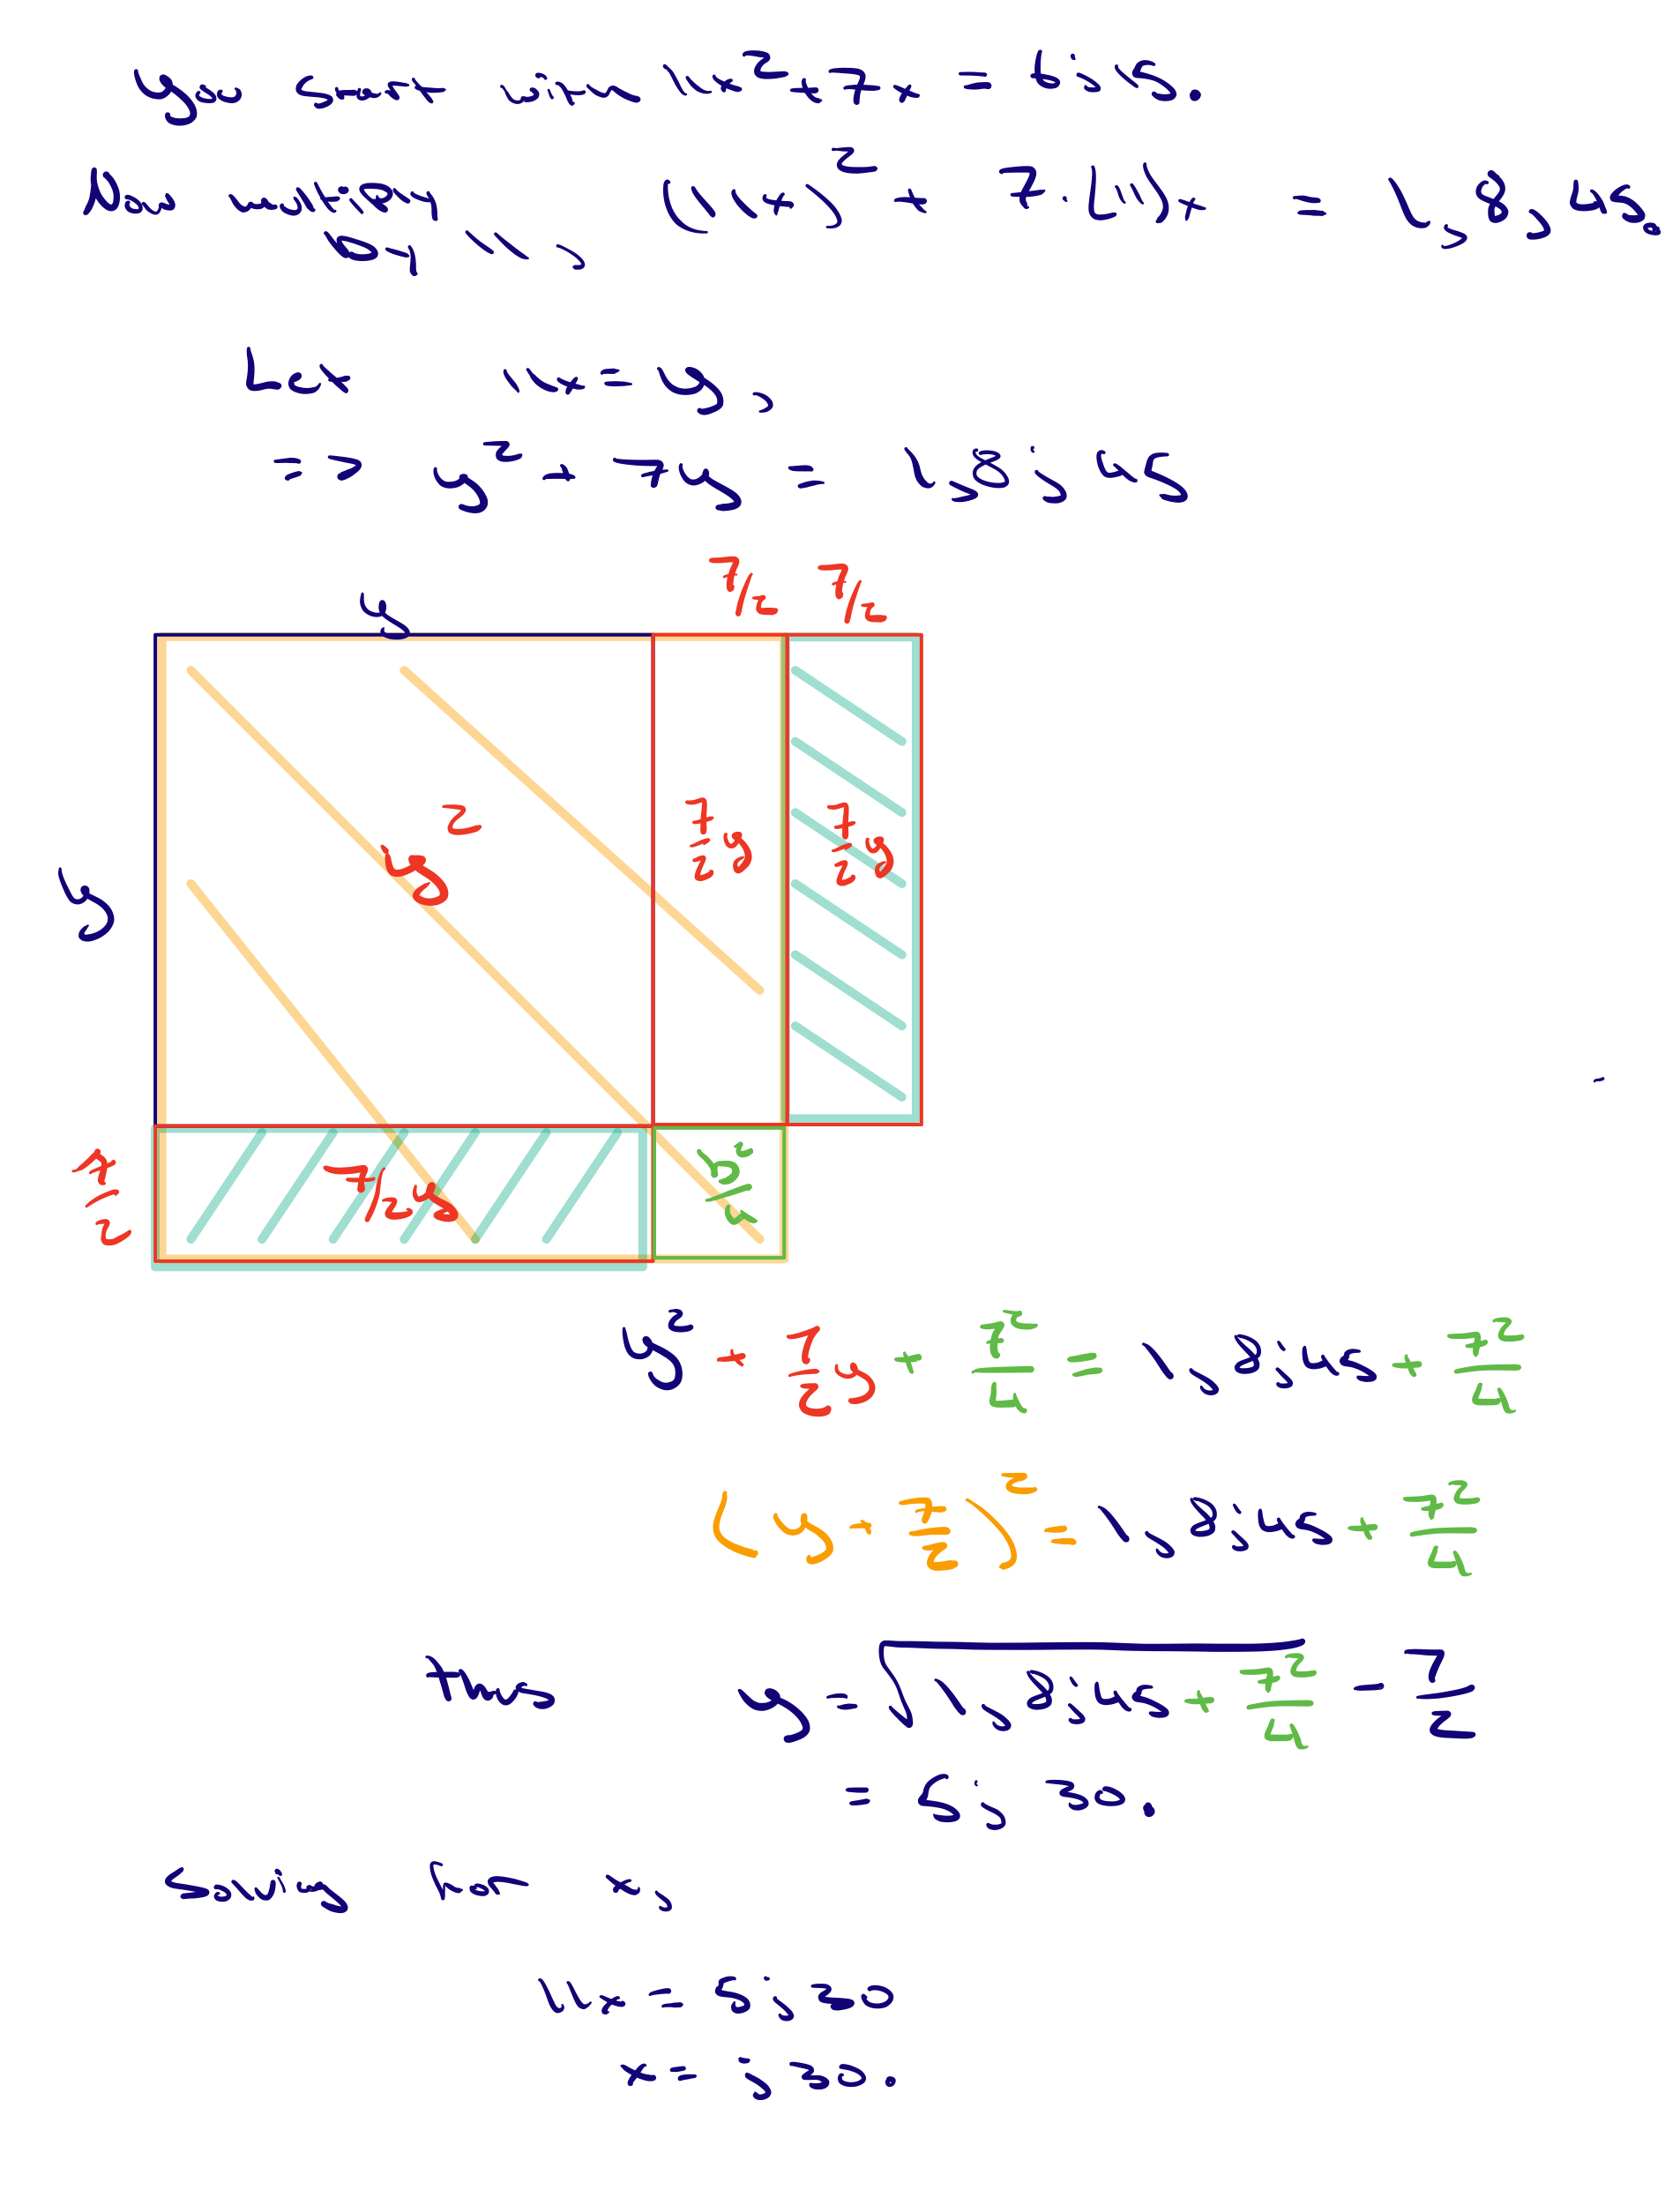 you start with 11x²+7x = 6;15.
Now multiply (11x)² + 7·(11)x = 1,8;45.
by 11,
Let 11x = y,
=> y² + 7y = 1,8;45
7/2 7/2
y
y² 7/2 y 7/2 y
y
7/2 7/2 y 7²/4
y² + 7/2 y + 7²/4 = 1,8;45 + 7²/4
(y + 7/2)² = 1,8;45 + 7²/4
thus y = √(1,8;45 + 7²/4) - 7/2
= 5;30.
Solving for x,
11x = 5;30
x = ;30.